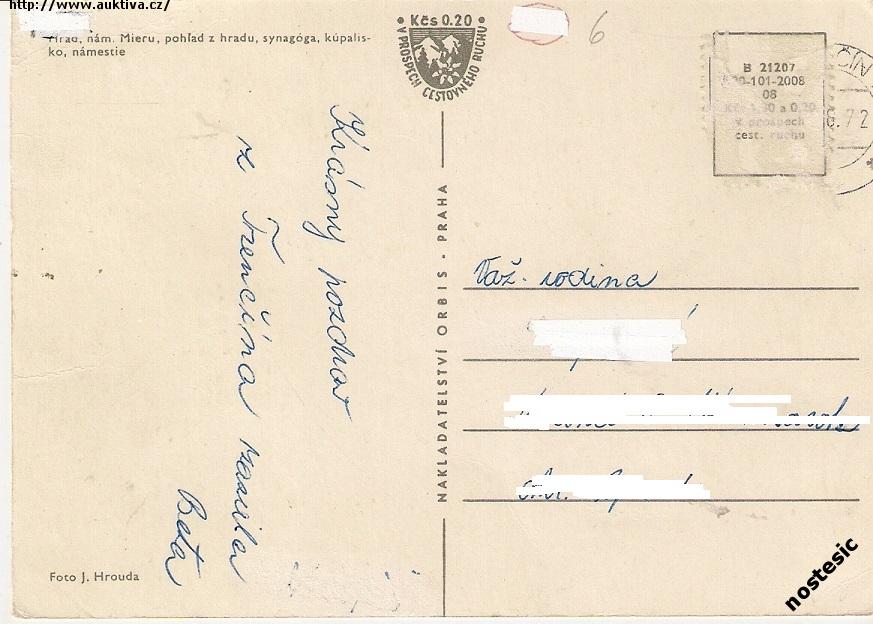 http://www.auktiva.cz/
Hrad, nám. Mieru, pohľad z hradu, synagóga, kúpalis-
ko, námestie
Kčs 0.20
V PROSPECH CESTOVNÉHO RUCHU
6
B 21207
-101-2008
08
Kčs 1,30 a 0,20
v prospech
cest. ruchu
6.72
Krásny pozdrav
z Trenčína
Beta
NAKLADATELSTVÍ ORBIS · PRAHA
Váž. rodina
Foto J. Hrouda
nostesic